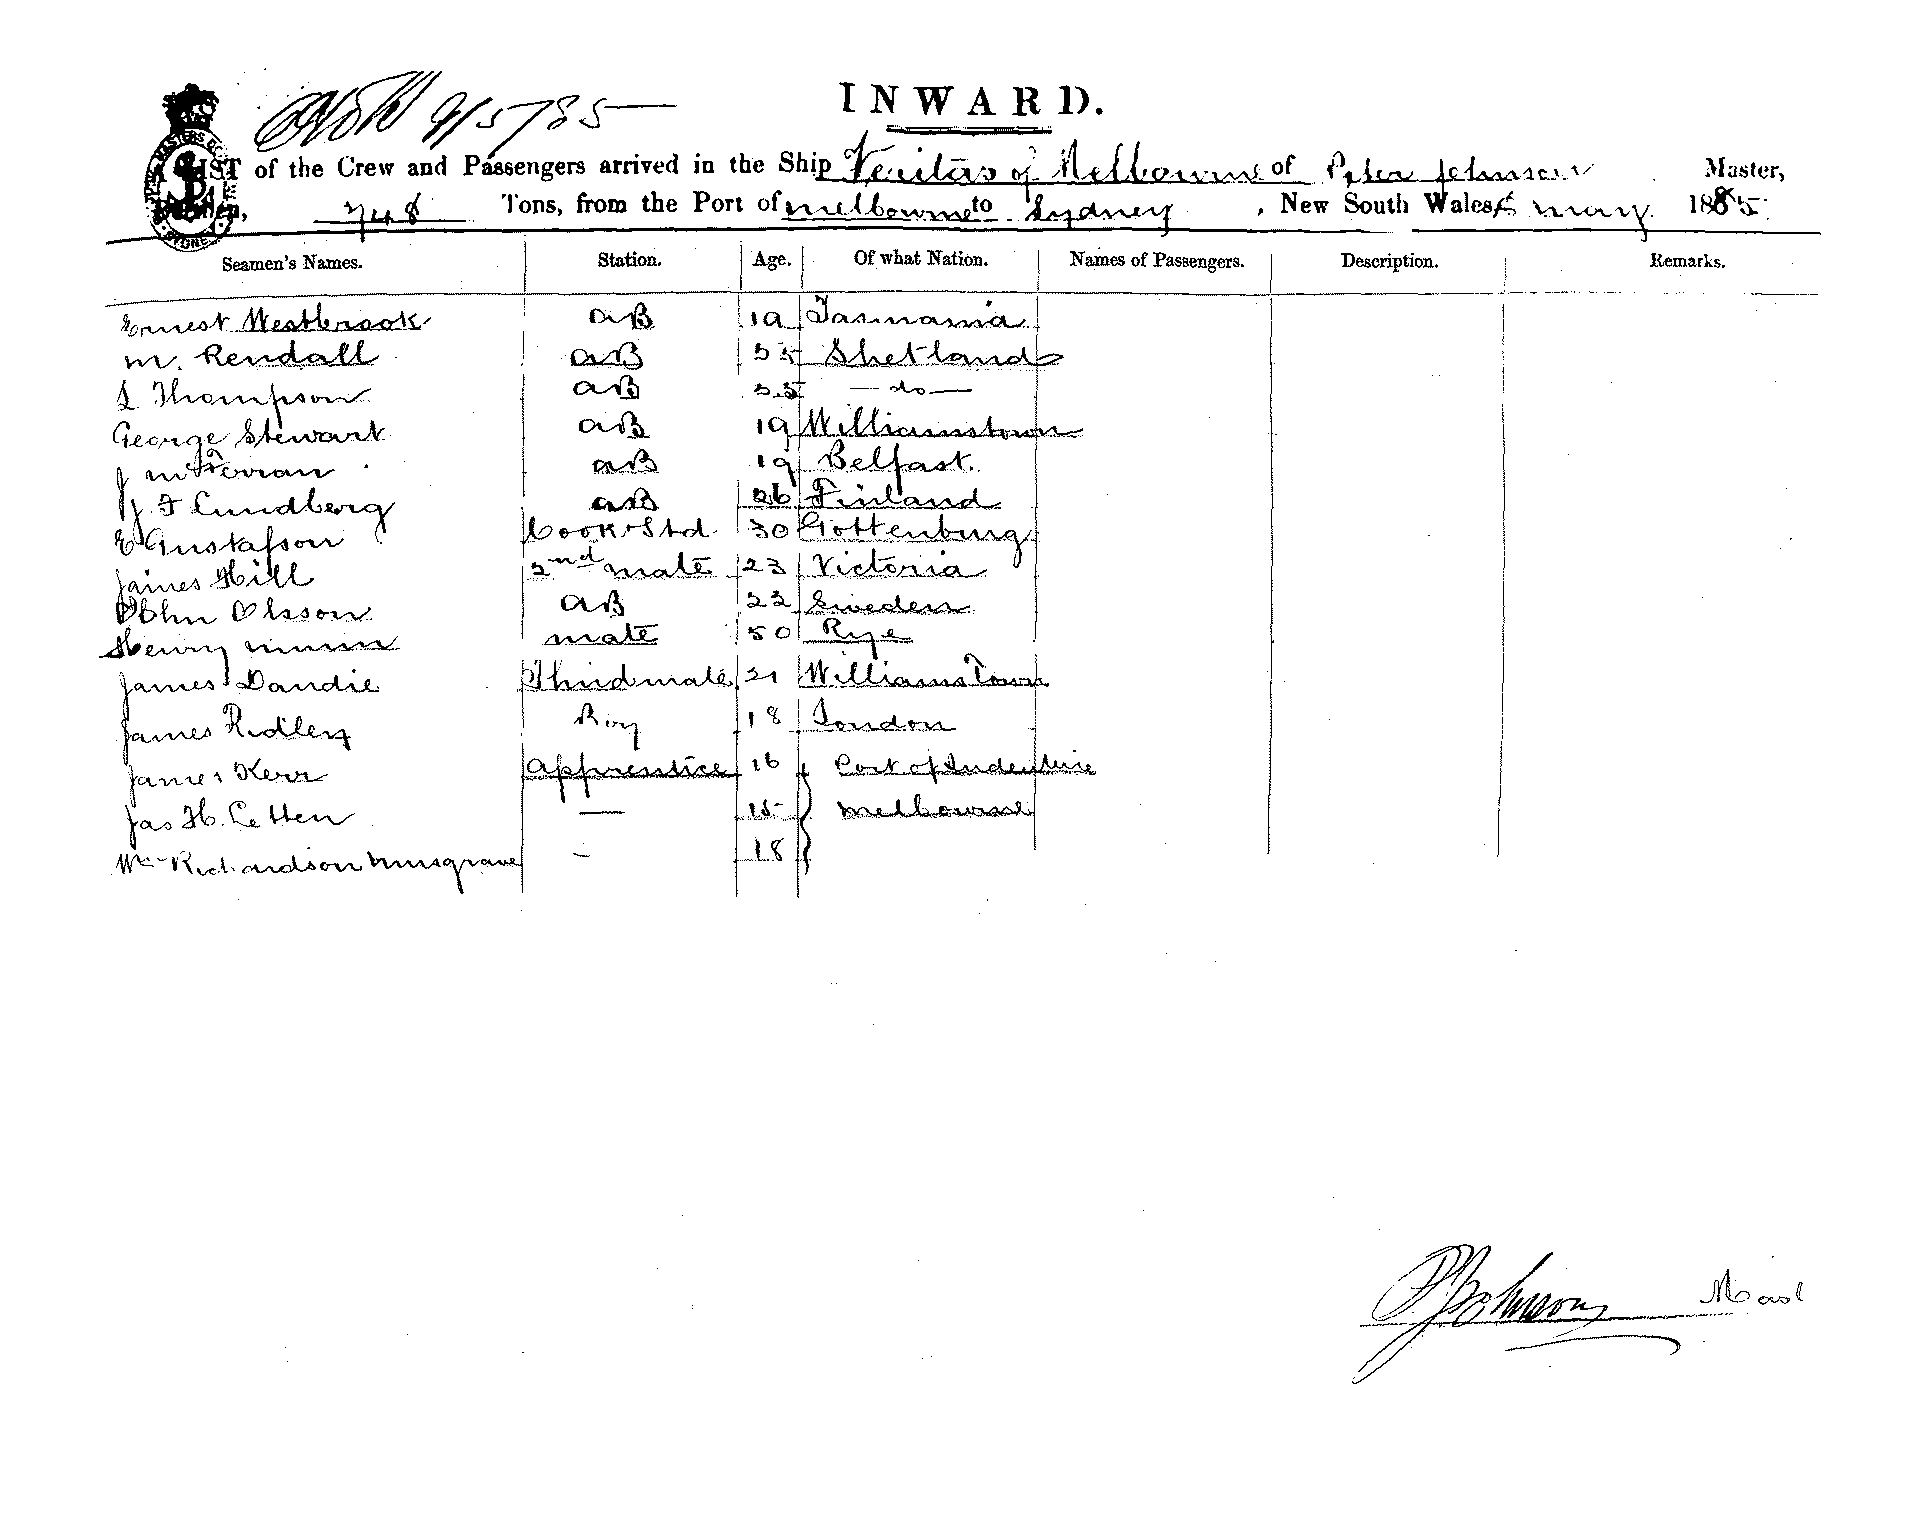 9/5/85
INWARD.
LIST of the Crew and Passengers arrived in the Ship Veritas of Melbourne of Peter Johnson Master,
748 Tons, from the Port of Melbourne to Sydney, New South Wales, May 1885
Seamen's Names. Station. Age. Of what Nation. Names of Passengers. Description. Remarks.
Ernest Westbrook AB 19 Tasmania
M. Rendall AB 35 Shetland
L Thompson AB 35 — do —
George Stewart AB 19 Williamstown
J McFerran AB 19 Belfast.
J F Lundberg AB 26 Finland
E Gustafson Cook & Std 30 Gottenburg
James Hill 2nd mate 23 Victoria
John Olsson AB 22 Sweden
Henry Munn mate 50 Rye
James Dandie Third mate 21 Williams Town
James Ridley Boy 18 London
James Kerr Apprentice 16 Port of Indenture
Jas H. Cotten — 15 Melbourne
Wm Richardson Musgrave – 18
P Johnson Mast